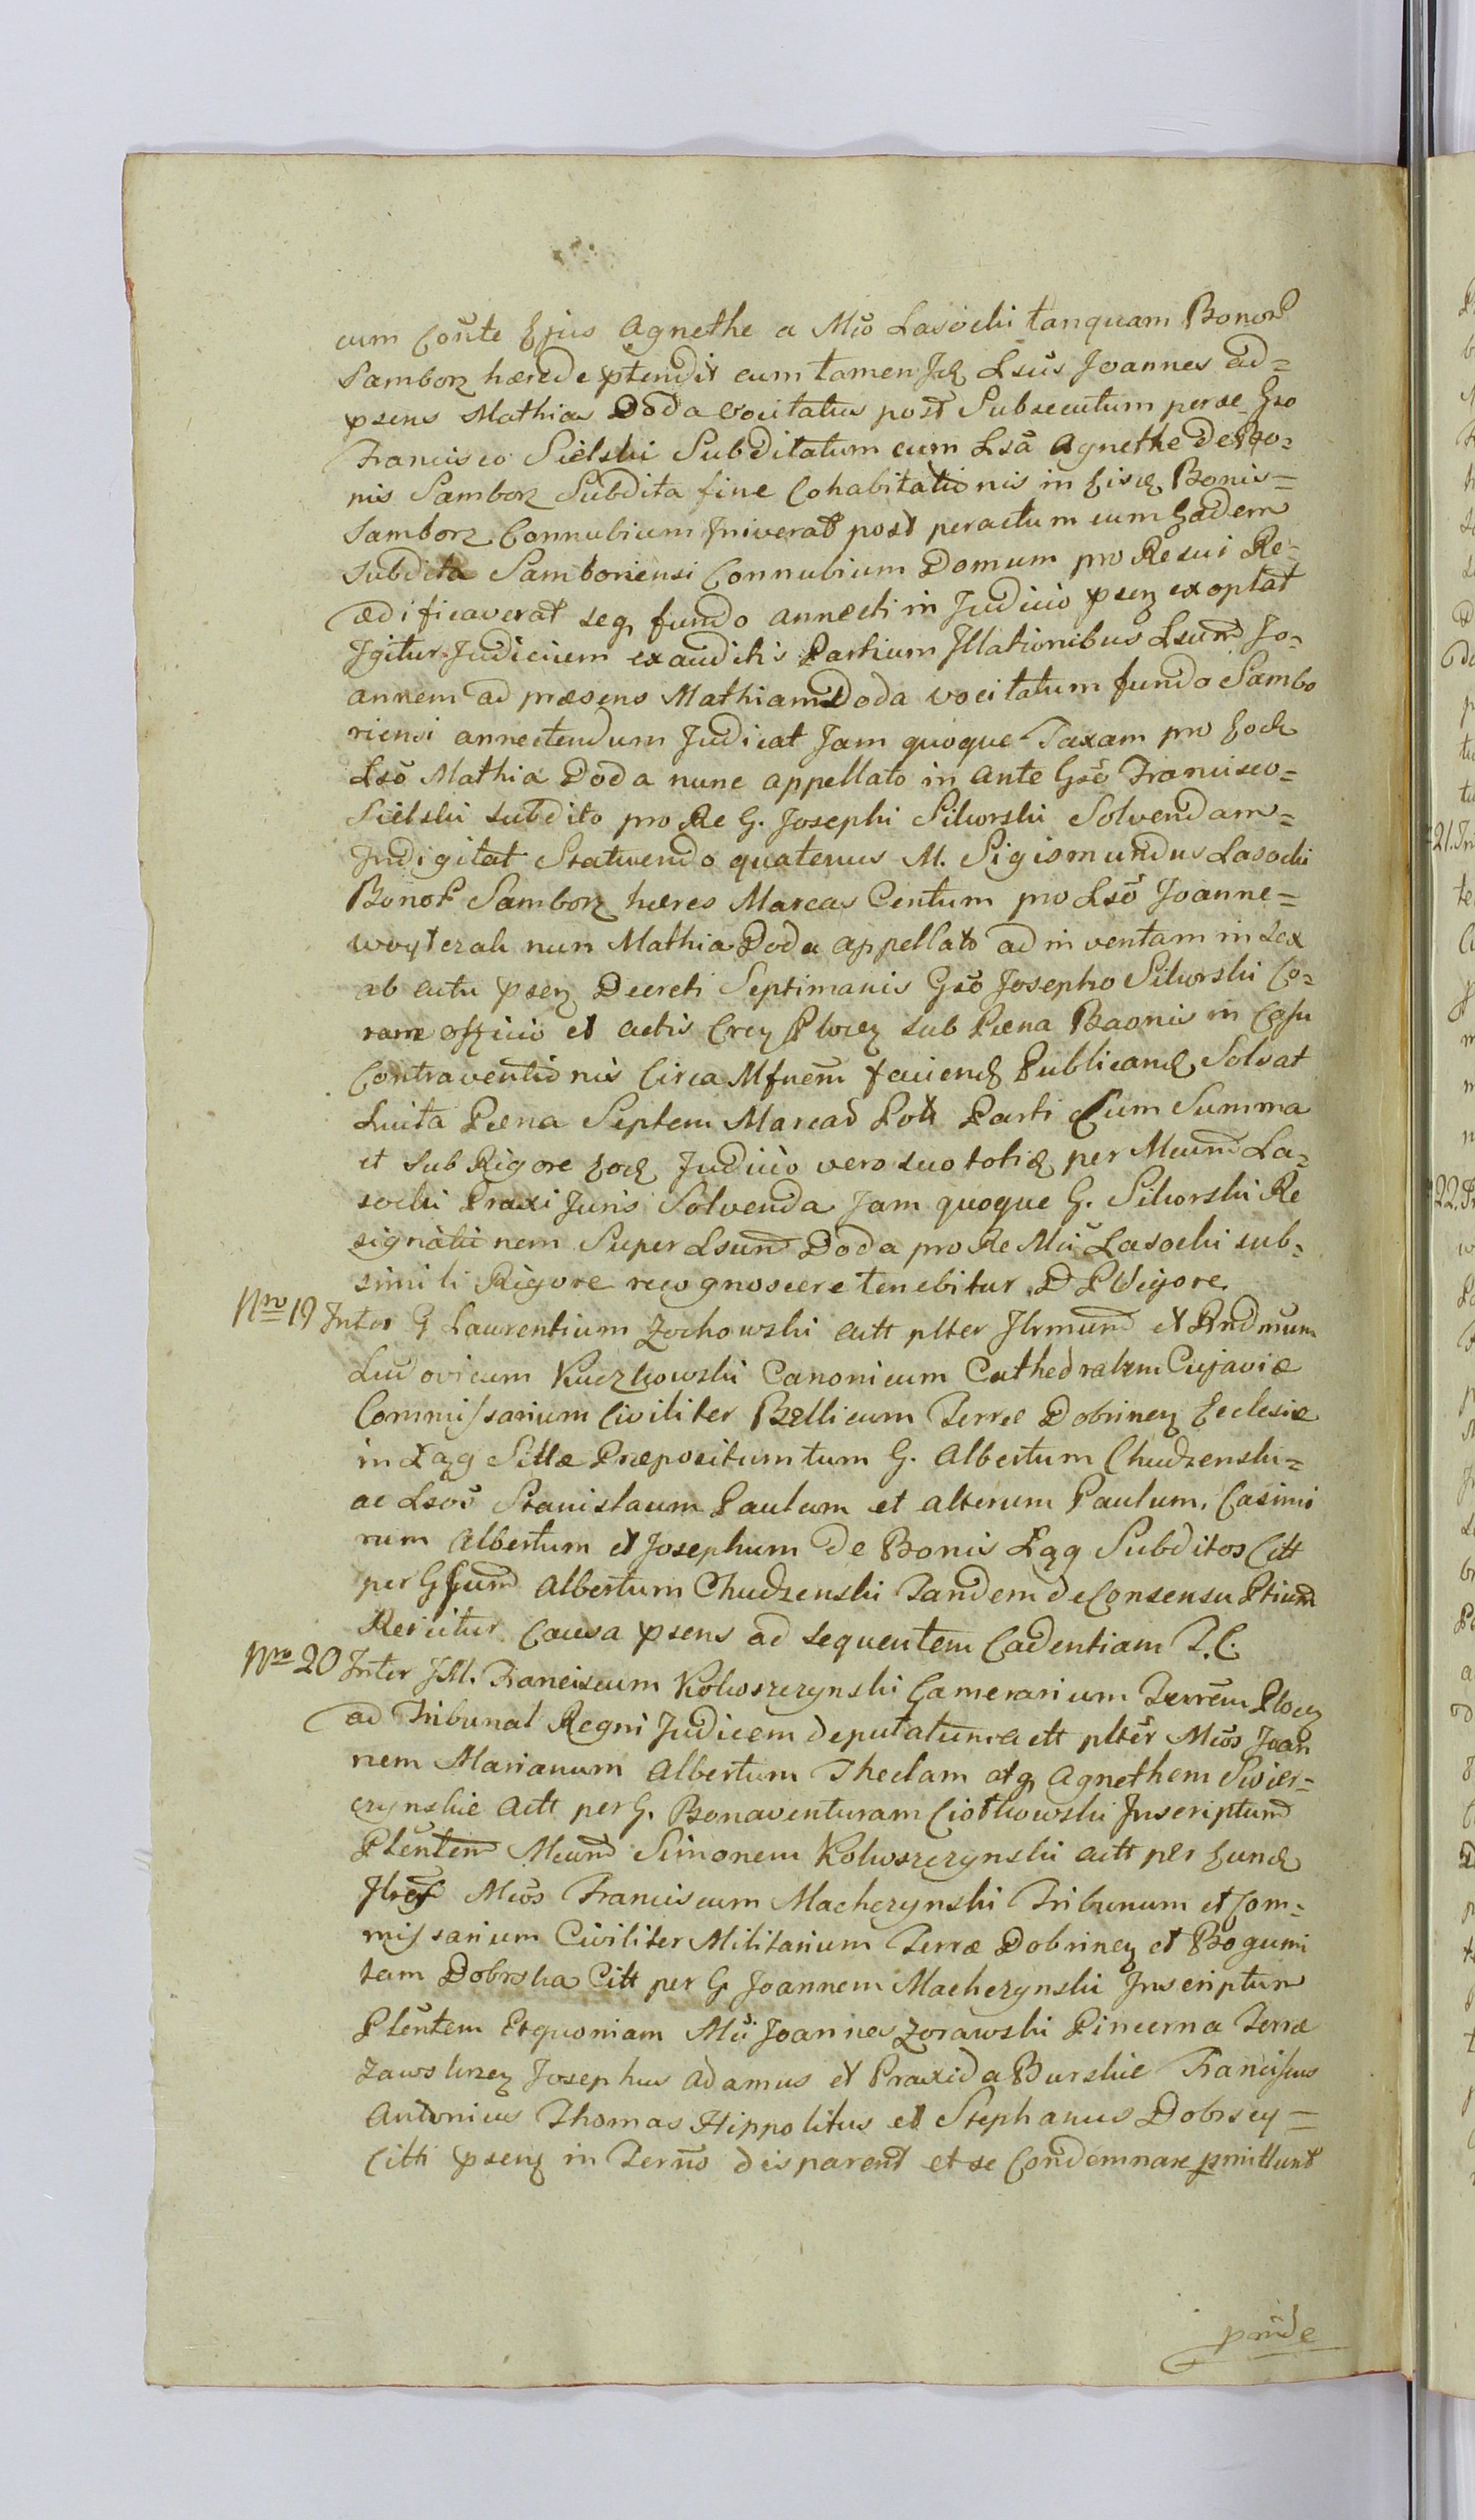 cum Coñte Ejus Agnethe a Mco Lasocki tanquam Bonor
Samborz hærede ptendit cum tamen Lsus Joannes ad=
psens Mathias Doda vocitatus post Subsecutum per se Gso
Francisco Sielski Subditatum cum Lsa Agnethe de Bo=
nis Samborz Subdita fine Cohabitationis in Bonis=
Samborz Connubium Iniverat post peractum cum Eadem
Subdita Samboriensi Connubium Domum pro Re sui Re=
ædificaverat seq fundo annecti in Judicio psenz exoptat
Igitur Judicium exauditis Partium Illationibus Lsum Jo=
annem ad præsens Mathiam Doda vocitatum fundo Sambo
riensi annectendum Judicat Jam quoque Taxam pro
Lso Mathia Doda nunc appellato in ante Gso Francisco=
Sielski subdito pro Re G. Josephi Sikorski Solvendam=
Indigitat Statuendo quatenus M. Sigismundus Lasocki
Bonor Samborz hæres Marcas Centum pro Lso Joanne=
woyterak nun Mathia Doda appellato ad inventam in Sex
ab actu psenz Decreti Septimanis Gso Josepho Sikorski Co=
ram officio et actis Plocz sub Pæna Baonis in Casu
Contraventionis Circa Publicand Solvat
Luita Pæna Septem Marcas Parti Cum Summa
et sub Rigore Judicio vero suo totid per Mcum La=
socki Praxi Juris Solvenda Jam quoque G. Sikorski Re
signationem Super Lsum Doda pro Re Mci Lasocki sub=
simili Rigore recognoscere tenebitur D P Vigore
Nro 19 Inter G Laurentium Zochowski Act plter Ilrmum et Rndmum
Ludovicum Kuczkowski Canonicum Cathedralem Cujaviæ
Commissarium Civiliter Bellicum Terræ Dobrinenz Ecclesiæ
in Præpositum tum G. Albertum Chudzenski=
ac Lsos Stanislaum Paulum et alterum Paulum, Casimi
rum Albertum et Josephum de Bonis Subditos Citt
per Albertum Chudzenski Tandem de Consensu Ptium
Reiicitur Causa psens ad sequentem Cadentiam T.C.
Nro 20 Inter JM. Franciscum Kokoszczynski Camerarium Terrem Plocz
ad Tribunal Regni Judicem deputatum Act plter Mcos Joan
nem Marianum Albertum Theclam atq Agnethem Swier=
czynskie Act per G. Bonaventuram Ciotkowski Inscriptum
Plentem Mcum Simonem Kokoszczynski Act per
Mcos Franciscum Machczynski Tribunum et Com=
missarium Civiliter Militarium Terræ Dobrinenz et Bogumi
lam Dobrska Citt per G Joannem Machczynski Inscriptum
Plentem Et quoniam Mci Joannes Zorawski Pincerna Terræ
Zawskrzenz Josephus Adamus et Praxida Burskie Franciscus
Antonius Thomas Hippolitus et Stephanus Dobrscy=
Citti psenz in Termo disparent et se Condemnare pmittunt
pmde